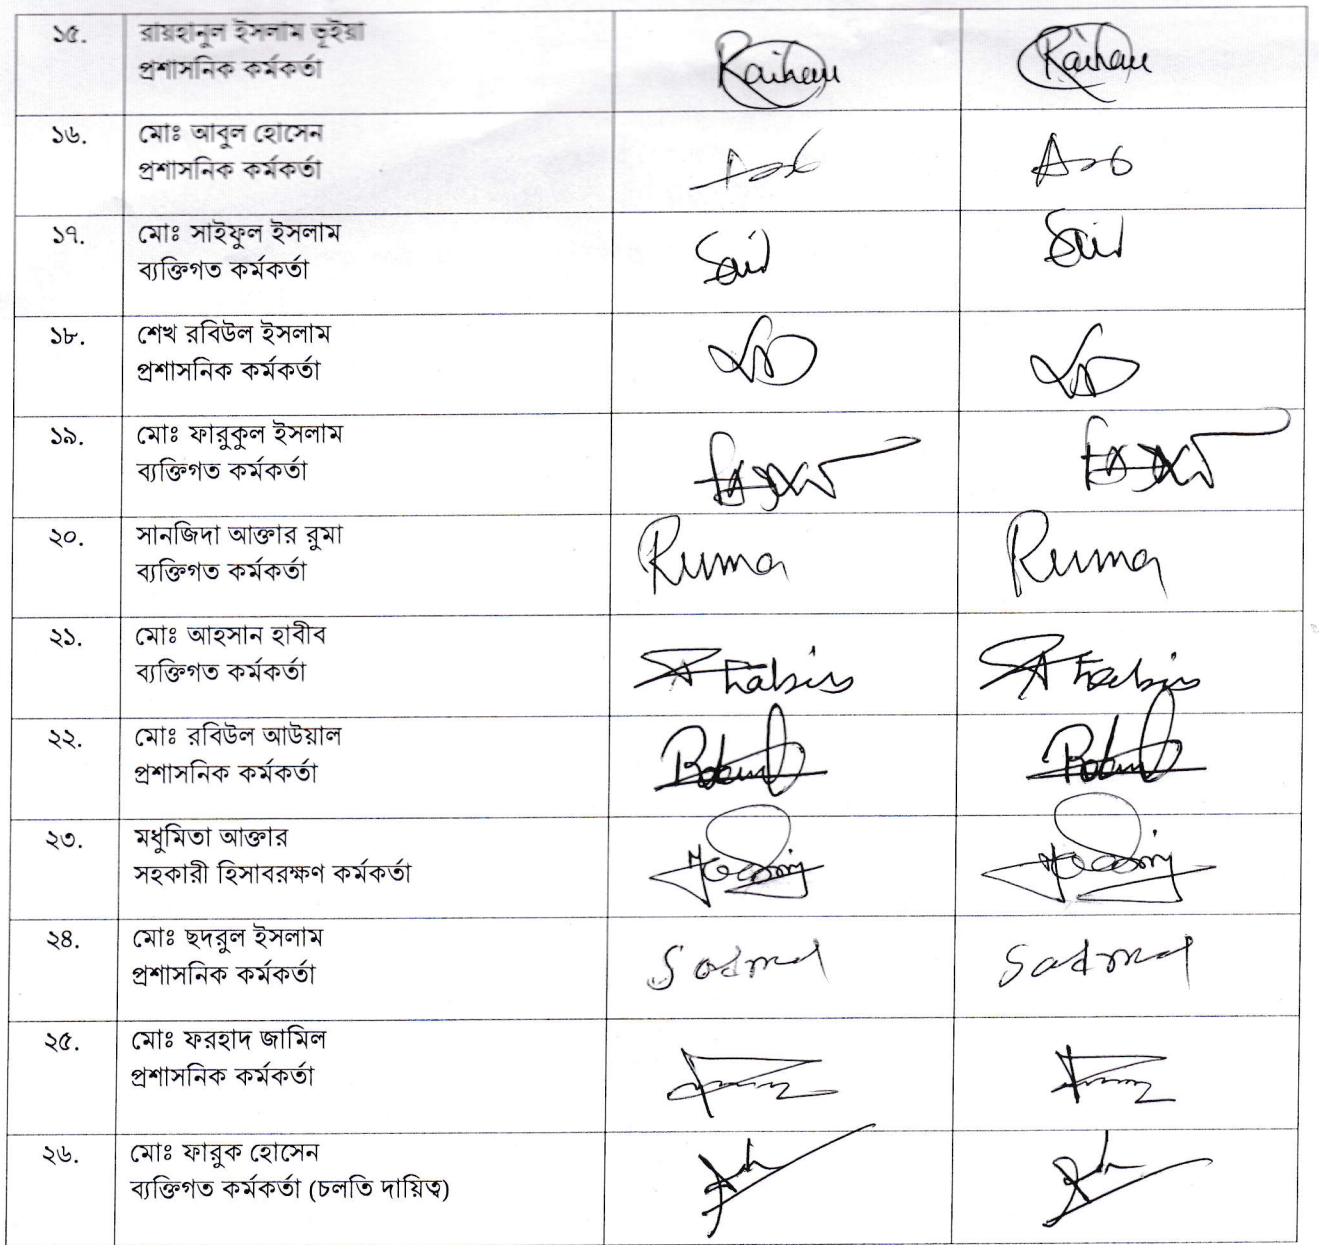 ১৫. রায়হানুল ইসলাম ভূইয়া
প্রশাসনিক কর্মকর্তা
Raihan Raihan
১৬. মোঃ আবুল হোসেন
প্রশাসনিক কর্মকর্তা
১৭. মোঃ সাইফুল ইসলাম
ব্যক্তিগত কর্মকর্তা
১৮. শেখ রবিউল ইসলাম
প্রশাসনিক কর্মকর্তা
১৯. মোঃ ফারুকুল ইসলাম
ব্যক্তিগত কর্মকর্তা
২০. সানজিদা আক্তার রুমা
ব্যক্তিগত কর্মকর্তা
Ruma Ruma
২১. মোঃ আহসান হাবীব
ব্যক্তিগত কর্মকর্তা
২২. মোঃ রবিউল আউয়াল
প্রশাসনিক কর্মকর্তা
২৩. মধুমিতা আক্তার
সহকারী হিসাবরক্ষণ কর্মকর্তা
২৪. মোঃ ছদরুল ইসলাম
প্রশাসনিক কর্মকর্তা
২৫. মোঃ ফরহাদ জামিল
প্রশাসনিক কর্মকর্তা
২৬. মোঃ ফারুক হোসেন
ব্যক্তিগত কর্মকর্তা (চলতি দায়িত্ব)